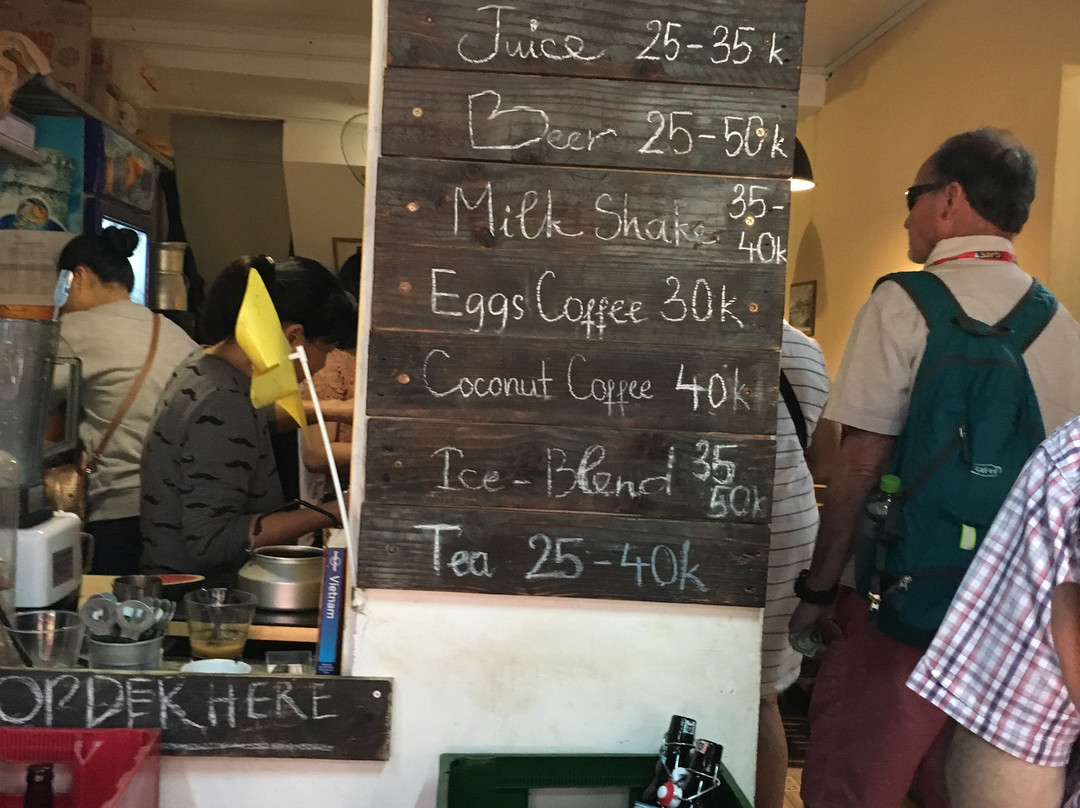 Juice 25-35k
Beer 25-50k
Milk Shake 35-
40k
Eggs Coffee 30k
Coconut Coffee 40k
Ice-Blend 35
50k
Tea 25-40k
Vietnam
ORDER HERE